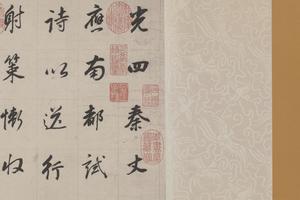 光四秦丈
應南都試
詩以送行
射策慚收